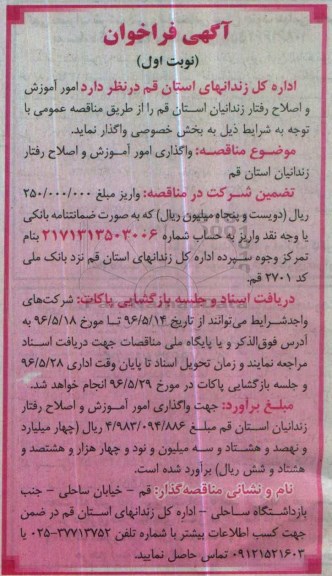 آگهی فراخوان
(نوبت اول)
اداره کل زندانهای استان قم درنظر دارد امور آموزش
و اصلاح رفتار زندانیان استان قم را از طریق مناقصه عمومی با
توجه به شرایط ذیل به بخش خصوصی واگذار نماید.
موضوع مناقصه: واگذاری امور آموزش و اصلاح رفتار
زندانیان استان قم
تضمین شرکت در مناقصه: واریز مبلغ ۲۵۰/۰۰۰/۰۰۰
ریال (دویست و پنجاه میلیون ریال) که به صورت ضمانتنامه بانکی
یا وجه نقد واریز به حساب شماره ۲۱۷۱۳۱۳۵۰۳۰۰۶ بنام
تمرکز وجوه سپرده اداره کل زندانهای استان قم نزد بانک ملی
کد ۲۷۰۱ قم.
دریافت اسناد و جلسه بازگشایی پاکات: شرکت‌های
واجدشرایط می‌توانند از تاریخ ۹۶/۵/۱۴ تا مورخ ۹۶/۵/۱۸ به
آدرس فوق‌الذکر و یا پایگاه ملی مناقصات جهت دریافت اسناد
مراجعه نمایند و زمان تحویل اسناد تا پایان وقت اداری ۹۶/۵/۲۸
و جلسه بازگشایی پاکات در مورخ ۹۶/۵/۲۹ انجام خواهد شد.
مبلغ برآورد: جهت واگذاری امور آموزش و اصلاح رفتار
زندانیان استان قم مبلغ ۴/۹۸۳/۰۹۴/۸۸۶ ریال (چهار میلیارد
و نهصد و هشتاد و سه میلیون و نود و چهار هزار و هشتصد و
هشتاد و شش ریال) برآورد شده است.
نام و نشانی مناقصه‌گذار: قم - خیابان ساحلی - جنب
بازداشتگاه ساحلی - اداره کل زندانهای استان قم در ضمن
جهت کسب اطلاعات بیشتر با شماره تلفن ۳۷۷۱۳۷۵۲-۰۲۵ یا
۰۹۱۲۱۵۲۱۶۰۳ تماس حاصل نمایید.